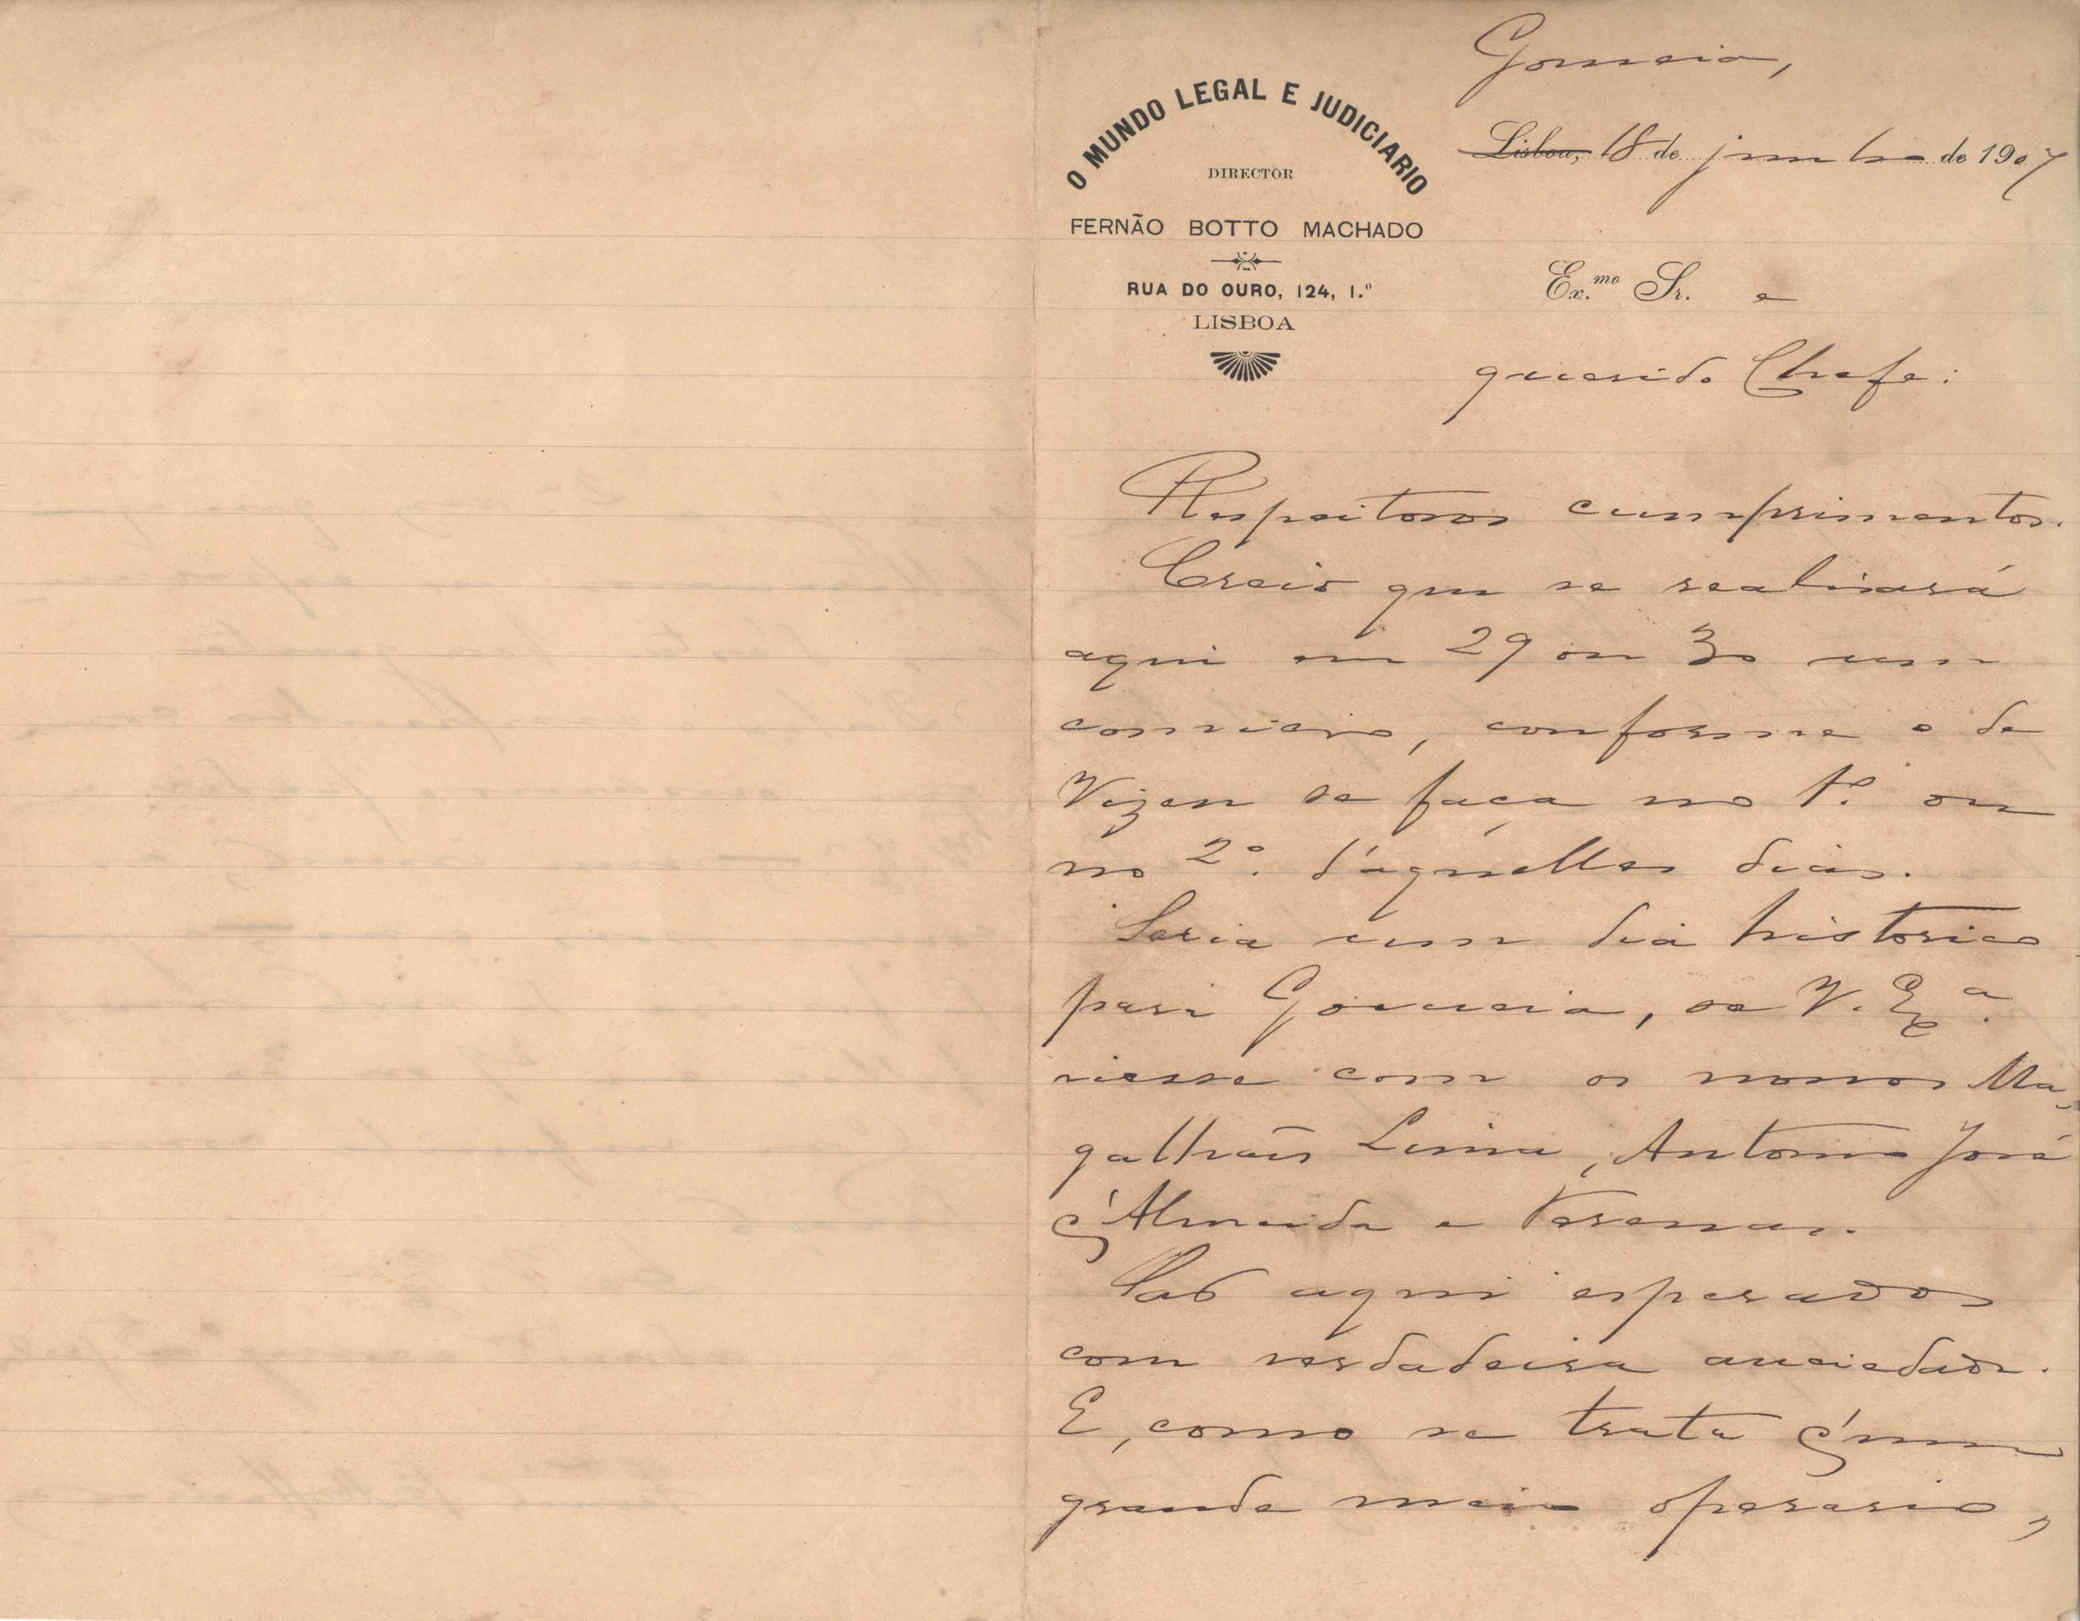 O MUNDO LEGAL E JUDICIARIO
DIRECTOR
FERNÃO BOTTO MACHADO
RUA DO OURO, 124, 1.º
LISBOA
Gouveia,
Lisboa, 18 de junho de 1907
Ex.mo Sr. e
querido Chefe:
Respeitosos cumprimentos.
Creio que se realisará
aqui em 29 ou 30 um
comicio, conforme o de
Vizeu se faça no 1.º ou
no 2.º d'aquelles dias.
Seria um dia historico
para Gouveia, se V. Exª.
viesse com os nossos Ma-
galhães Lima, Antonio José
d'Almeida e
São aqui esperados
com verdadeira anciedade.
E, como se trata d'um
grande meio operario,